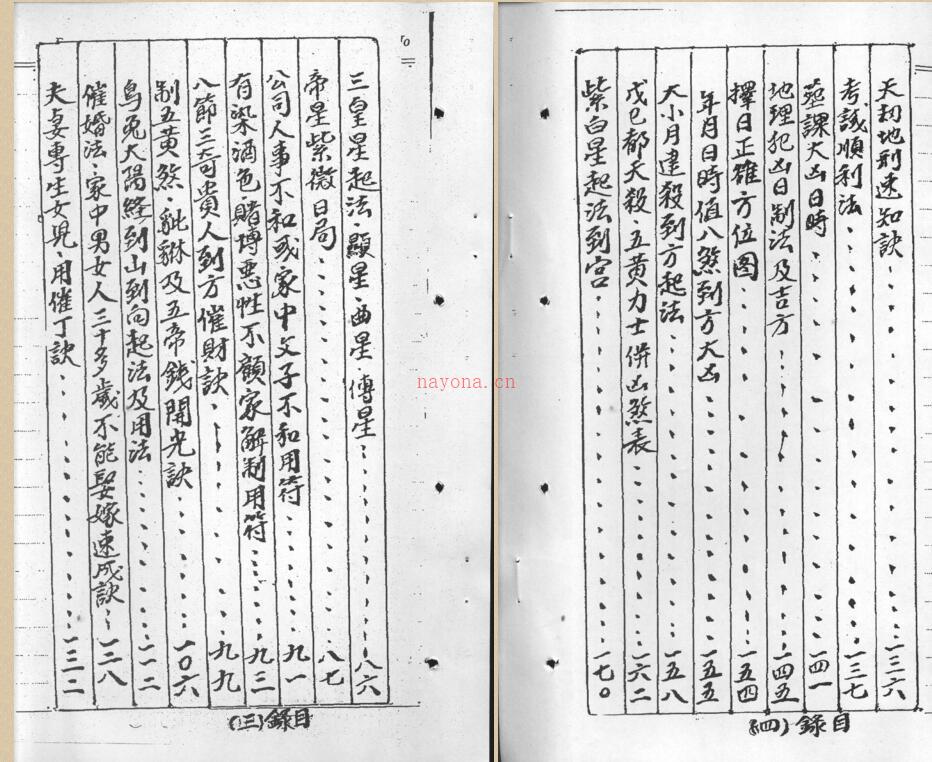 三皇星起法.顯星.曲星.傅星……八六
帝星紫微日局……八七
公司人事不和或家中父子不和用符……九一
有染酒色賭博惡性不顧家解制用符……九三
八節三奇貴人到方催財訣……九九
制五黃煞.貔貅及五帝錢開光訣……一〇六
烏兔太陽經到山到向起法及用法……一一二
催婚法.家中男女人三十多歲不能娶嫁速成訣……一二八
夫妻專生女兒.用催丁訣……一三二
目錄(三)
天刧地刑速知訣……一三六
考試順利法……一三七
葬課大凶日時……一四一
地理犯凶日制法及吉方……一四五
擇日正確方位图……一五四
年月日時值八煞到方大凶……一五五
大小月建殺到方起法……一五八
戊己都天殺.五黃力士併凶煞表……一六二
紫白星起法到宮……一七〇
目錄(四)
nayona.cn